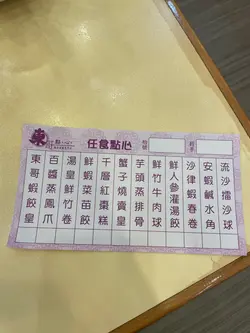 東
任食點心
流沙擂沙球
安蝦鹹水角
沙律蝦春卷
鮮人參灌湯餃
鮮竹牛肉球
芋頭蒸排骨
蟹子燒賣皇
千層紅棗糕
鮮蝦菜苗餃
湯皇鮮竹卷
百醬蒸鳳爪
東哥蝦餃皇